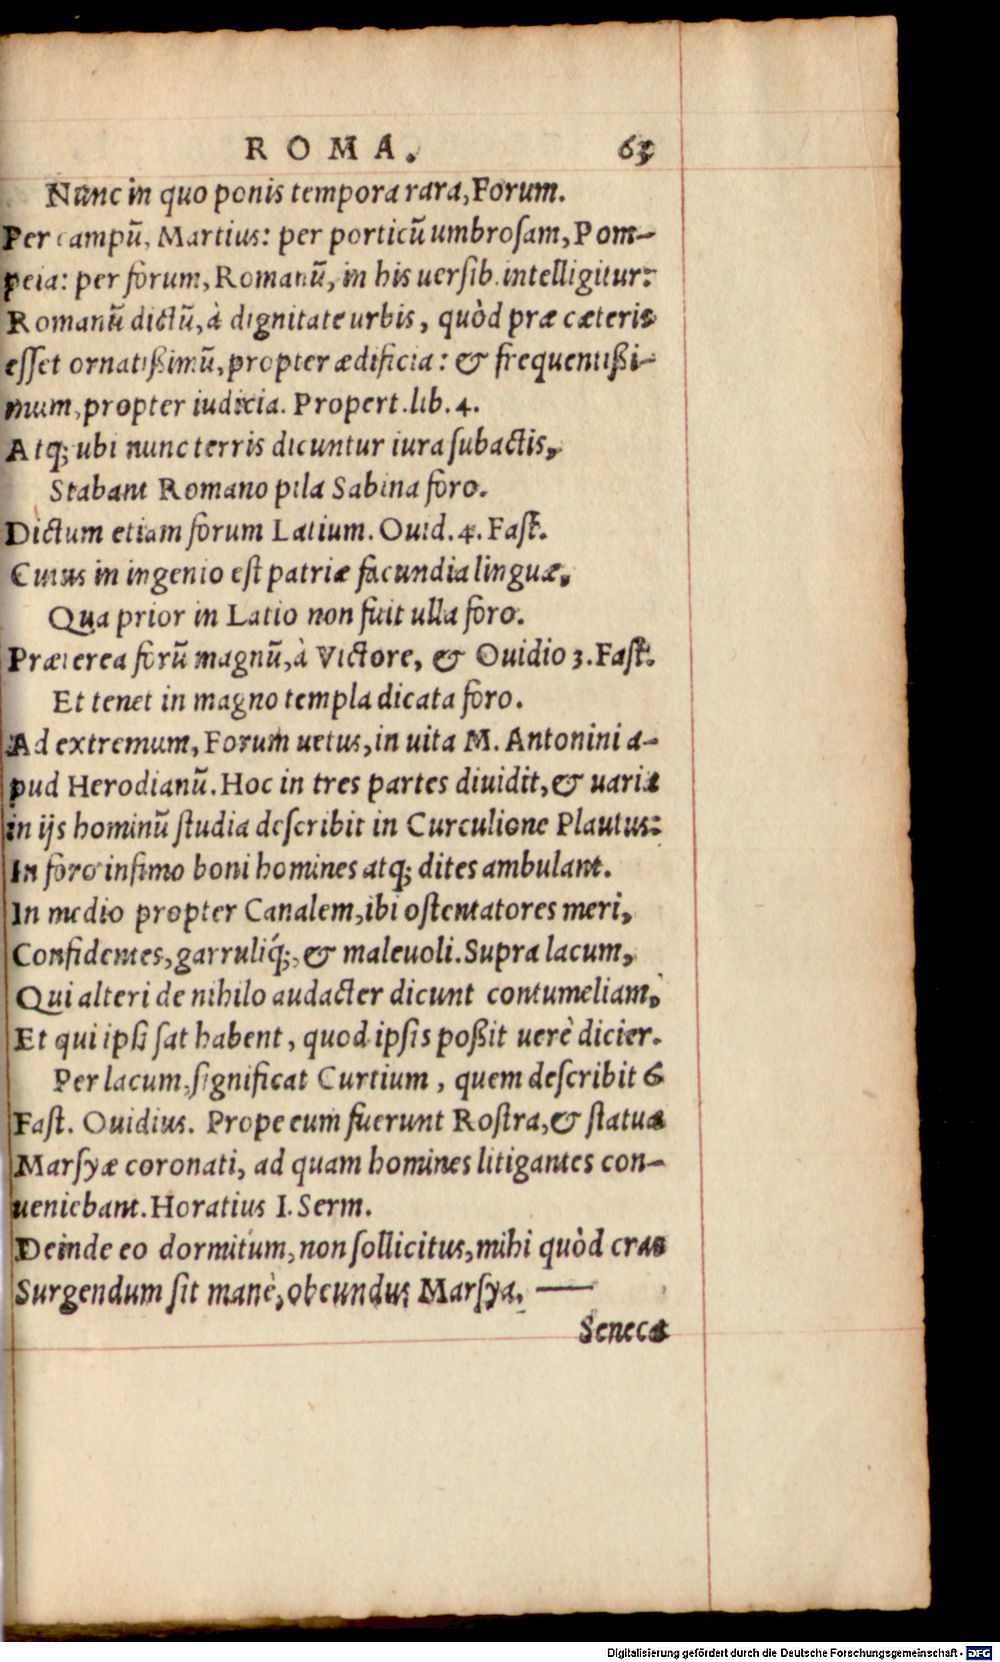 ROMA. 63
Nunc in quo ponis tempora rara, Forum.
Per campū, Martius: per porticū umbroſam, Pom-
peia: per forum, Romanū, in his uerſib. intelligitur:
Romanū dictū, à dignitate urbis, quòd præ cæteris
eſſet ornatißimū, propter ædificia: & frequentißi-
mum, propter iudicia. Propert. lib. 4.
Atq; ubi nunc terris dicuntur iura ſubactis,
Stabant Romano pila Sabina foro.
Dictum etiam forum Latium. Ouid. 4. Faſt.
Cuius in ingenio eſt patriæ facundia linguæ,
Qua prior in Latio non fuit ulla foro.
Præterea forū magnū, à Victore, & Ouidio 3. Faſt.
Et tenet in magno templa dicata foro.
Ad extremum, Forum uetus, in uita M. Antonini a-
pud Herodianū. Hoc in tres partes diuidit, & uaria
in ijs hominū ſtudia deſcribit in Curculione Plautus:
In foro infimo boni homines atq; dites ambulant.
In medio propter Canalem, ibi oſtentatores meri,
Confidentes, garruliq́;, & maleuoli. Supra lacum,
Qui alteri de nihilo audacter dicunt contumeliam,
Et qui ipſi ſat habent, quod ipſis poßit uerè dicier.
Per lacum, ſignificat Curtium, quem deſcribit 6
Faſt. Ouidius. Prope eum fuerunt Roſtra, & ſtatua
Marſyæ coronati, ad quam homines litigantes con-
ueniebant. Horatius I. Serm.
Deinde eo dormitum, non ſollicitus, mihi quòd cras
Surgendum ſit manè, obeundus Marſya. —
Seneca
Digitalisierung gefördert durch die Deutsche Forschungsgemeinschaft - DFG